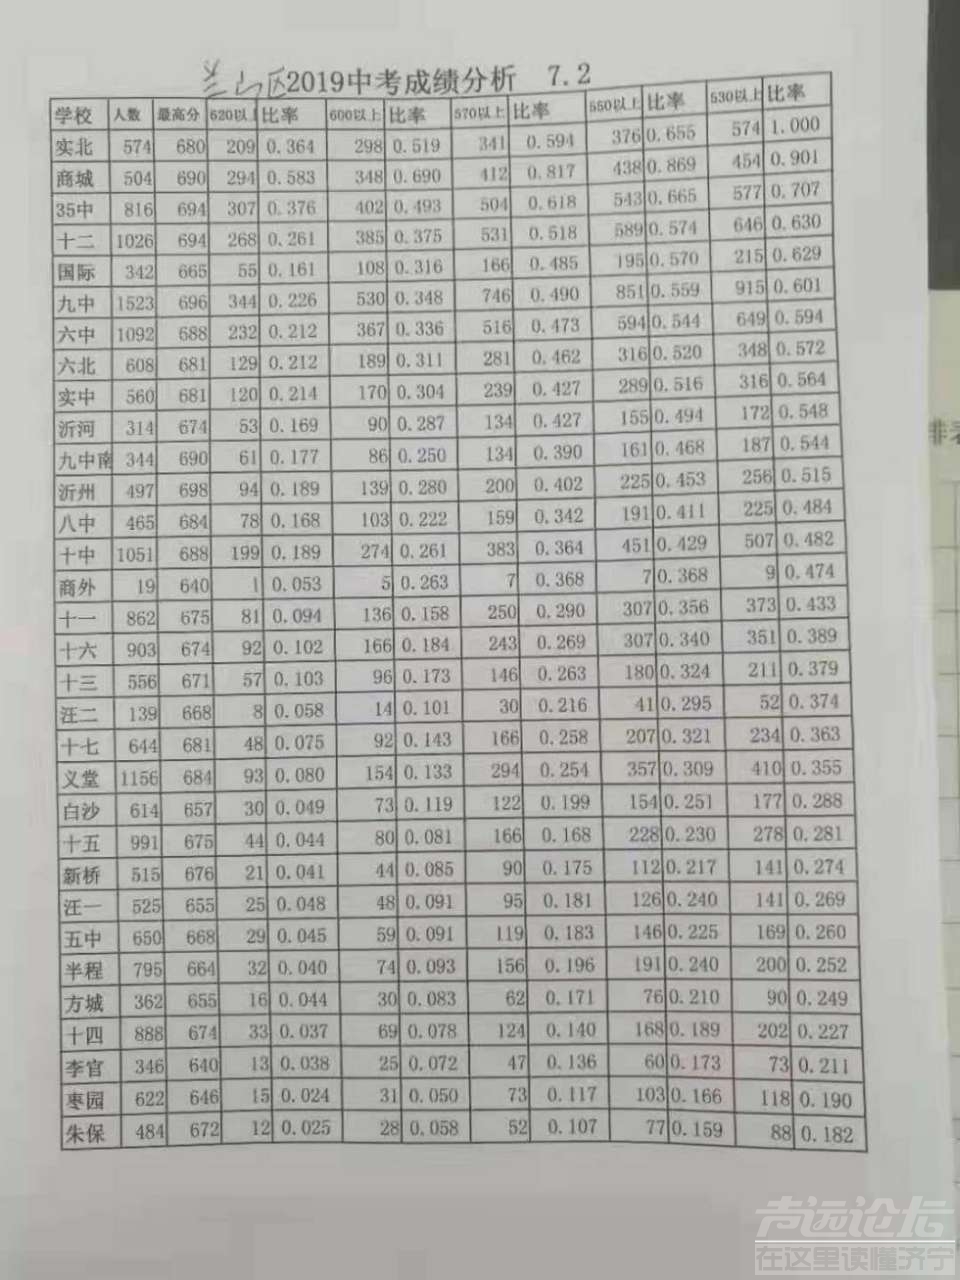 兰山区2019中考成绩分析 7.2
学校 人数 最高分 620以上 比率 600以上 比率 570以上 比率 550以上 比率 530以上 比率
实北 574 680 209 0.364 298 0.519 341 0.594 376 0.655 574 1.000
商城 504 690 294 0.583 348 0.690 412 0.817 438 0.869 454 0.901
35中 816 694 307 0.376 402 0.493 504 0.618 543 0.665 577 0.707
十二 1026 694 268 0.261 385 0.375 531 0.518 589 0.574 646 0.630
国际 342 665 55 0.161 108 0.316 166 0.485 195 0.570 215 0.629
九中 1523 696 344 0.226 530 0.348 746 0.490 851 0.559 915 0.601
六中 1092 688 232 0.212 367 0.336 516 0.473 594 0.544 649 0.594
六北 608 681 129 0.212 189 0.311 281 0.462 316 0.520 348 0.572
实中 560 681 120 0.214 170 0.304 239 0.427 289 0.516 316 0.564
沂河 314 674 53 0.169 90 0.287 134 0.427 155 0.494 172 0.548
九中南 344 690 61 0.177 86 0.250 134 0.390 161 0.468 187 0.544
沂州 497 698 94 0.189 139 0.280 200 0.402 225 0.453 256 0.515
八中 465 684 78 0.168 103 0.222 159 0.342 191 0.411 225 0.484
十中 1051 688 199 0.189 274 0.261 383 0.364 451 0.429 507 0.482
商外 19 640 1 0.053 5 0.263 7 0.368 7 0.368 9 0.474
十一 862 675 81 0.094 136 0.158 250 0.290 307 0.356 373 0.433
十六 903 674 92 0.102 166 0.184 243 0.269 307 0.340 351 0.389
十三 556 671 57 0.103 96 0.173 146 0.263 180 0.324 211 0.379
汪二 139 668 8 0.058 14 0.101 30 0.216 41 0.295 52 0.374
十七 644 681 48 0.075 92 0.143 166 0.258 207 0.321 234 0.363
义堂 1156 684 93 0.080 154 0.133 294 0.254 357 0.309 410 0.355
白沙 614 657 30 0.049 73 0.119 122 0.199 154 0.251 177 0.288
十五 991 675 44 0.044 80 0.081 166 0.168 228 0.230 278 0.281
新桥 515 676 21 0.041 44 0.085 90 0.175 112 0.217 141 0.274
汪一 525 655 25 0.048 48 0.091 95 0.181 126 0.240 141 0.269
五中 650 668 29 0.045 59 0.091 119 0.183 146 0.225 169 0.260
半程 795 664 32 0.040 74 0.093 156 0.196 191 0.240 200 0.252
方城 362 655 16 0.044 30 0.083 62 0.171 76 0.210 90 0.249
十四 888 674 33 0.037 69 0.078 124 0.140 168 0.189 202 0.227
李官 346 640 13 0.038 25 0.072 47 0.136 60 0.173 73 0.211
枣园 622 646 15 0.024 31 0.050 73 0.117 103 0.166 118 0.190
朱保 484 672 12 0.025 28 0.058 52 0.107 77 0.159 88 0.182
声远论坛
在这里读懂济宁